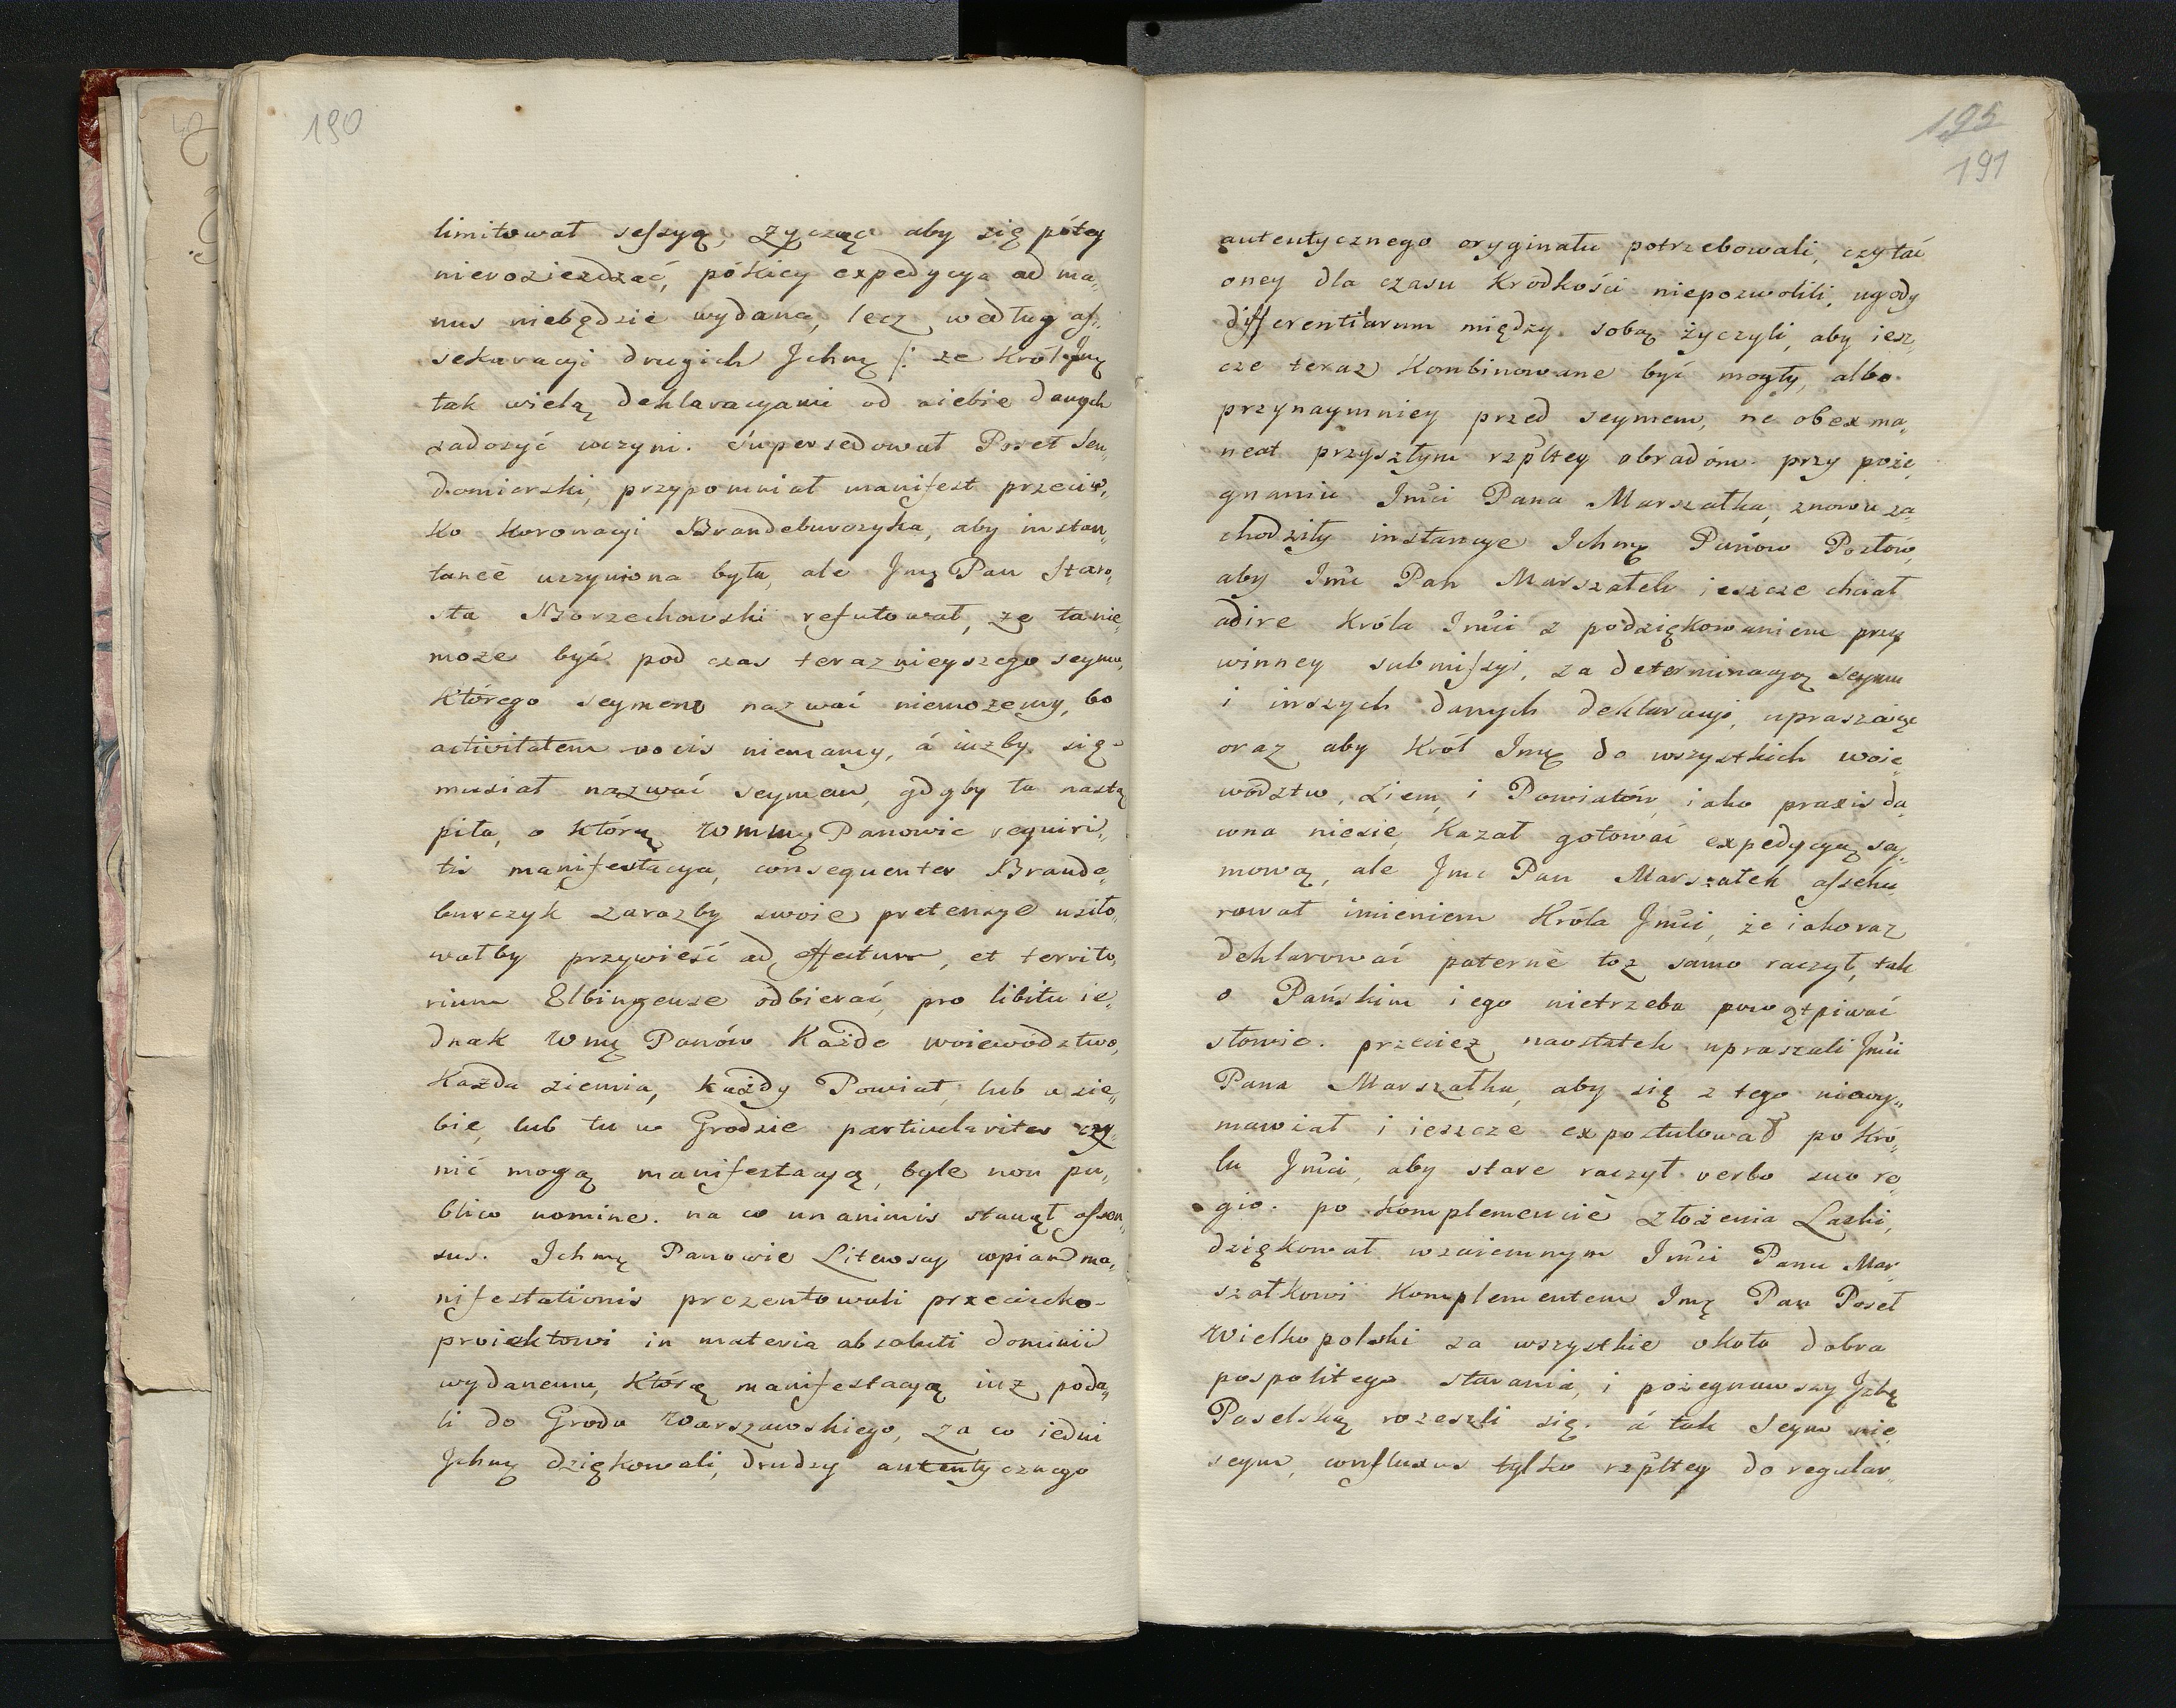 190
limitował sessyą, zycząc aby się pótey
nierozieżdzać, pókicy expedycya ad ma„
nus niebędzie wydana, lecz według as„
sekuracyi drugich Jchmę /: ze Król Jmę
tak wielą deklaracyami od siebie danych
zadosyć uczyni. supersedował Poseł Sen„
domierski, przypomniał manifest przeciw„
ko koronacyi Brandeburczyka, aby instan„
taneè uczyniona była, ale Jmę Pan Staro„
sta Borzechowski refutował, ze ta nie„
moze być pod czas teraznieyszego seymu,
którego seymem nazwać niemożemy, bo
activitatem vocis niemamy, á iużby się
musiał nazwać seymem, gdyby ta nastą
piła, o którą Wmmę Panowie requiri„
tis manifestacya, consequenter Brande„
burczyk zarazby swoie pretensye usiło„
wałby przywieść ad effectum, et territo„
rium Elbingense odbierać, pro libitu ie„
dnak Wmę Panów Każde woiewództwo,
Każda ziemia, każdy Powiat, lub u sie„
bie, lub tu w Grodzie particulariter czy„
nić mogą manifestacyą, byle non pu„
blico nomine. na co unanimis stanął assen„
sus. Ichmę Panowie Litewscy copiam ma„
nifestationis prezentowali przeciwko
proiektowi in materia absoluti dominii
wydanemu, którą manifestacyą iuż poda„
li do Grodu Warszawskiego, za co iedni
Jchmę dziękowali, drudzy autentycznego
195
191
autentycznego oryginału potrzebowali, czytać
oney dla czasu Kródkości niepozwolili, ugody
differentiarum między sobą życzyli, aby iesz„
cze teraz Kombinowane być mogły, albo
przynaymniey przed seymem, ne obex ma„
neat przyszłym rzpłtey obradóm. przy poże„
gnaniu Jmci Pana Marszałka, znowu za„
chodziły instancye Ichmę Panow Posłów,
aby Jmc Pan Marszałek ieszcze chciał
adire Króla Jmci z podziękowaniem przy
winney submissyi, za determinacyą seymu
i inszych danych deklaracyi, upraszaiąc
oraz aby Król Jmę do wszystkich woie„
wództw, Ziem, i Powiatów, iako praxis da„
wna niesie, Kazał gotować expedycyą sey„
mową, ale Jmc Pan Marszałek asseku„
rował imieniem Króla Jmci, że iako raz
deklarować paternè toż samo raczył, tak
o Pańskim iego nietrzeba powątpiwać
słowie. przecież naostatek upraszali Jmci
Pana Marszałka, aby się z tego niewy„
mawiał i ieszcze expostulował po Kró„
lu Jmci, aby stare raczył verbo suo re„
gio. po Komplemencie złożenia Laski,
dziękował wzaiemnym Jmci Panu Mar„
szałkowi Komplementem Jmę Pan Poseł
Wielkopolski za wszystkie około dobra
pospolitego starania, i pożegnawszy Jzbę
Poselską rozeszli się. á tak Seym nie
seym, confluxus tylko rzpłtey do regular„